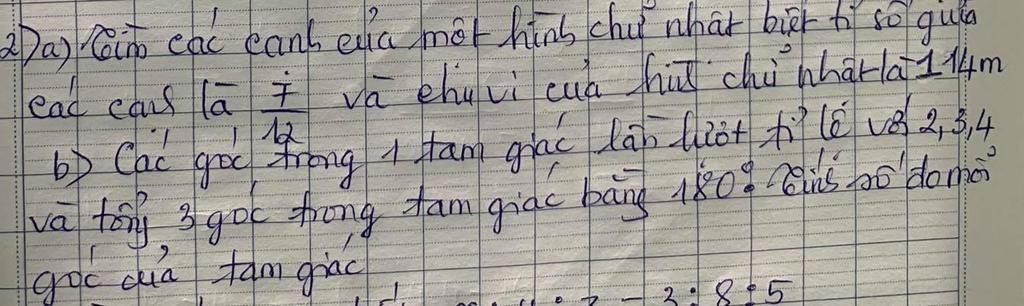 2) a) Tìm các cạnh của một hình chữ nhật biết tỉ số giữa
các cạnh là 7/12 và chu vi của hình chữ nhật là 114m
b) Các góc trong 1 tam giác lần lượt tỉ lệ với 2, 3, 4
và tổng 3 góc trong tam giác bằng 180°. Tính số đo mỗi
góc của tam giác
3 : 8 : 5